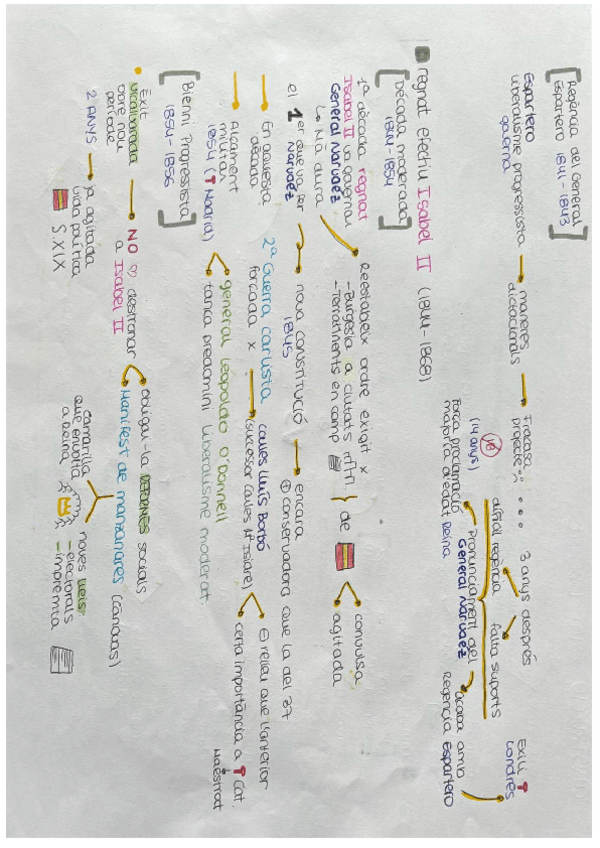 Regència del General
Espartero 1841-1843
Espartero
liberalisme progressista
governa
maneres
dictacionals
Fracasa
projecte
3 anys després
difícil regència
falta suports
Exili
Londres
Pronunciament del
General Narváez
acaba amb
Regència Espartero
(14 anys)
força proclamació
majoria d'edat Reina
regnat efectiu Isabel II (1844-1868)
Dècada moderada
1844-1854
1a dècada regnat
Isabel II va governar
General Narváez
Mà dura
Reestableix ordre exigit x
-Burgesia a ciutats
-Terratinents en camp
de
convulsa
agitada
el 1er que va fer
Narváez
nova constitució
1845
encara
+ conservadora que la del 37
En aquesta
dècada
2a Guerra carlista
forçada x
Carles Lluís Borbó
(sucesor Carles Mª Isidre)
⊖ relleu que l'anterior
certa importància a Cat.
Maestrat
Alçament
militar
1854 (Madrid)
general Leopoldo O'Donnell
tanca predomini liberalisme moderat.
Bienni Progressista
1854-1856
Èxit
Vicalvarada
obre nou
període
NO ♡ destronar
a Isabel II
obligar-la REFORMES socials
Manifest de Manzanares (Cánovas)
2 ANYS
ja agitada
vida política
S.XIX
camarilla
que envolta
a Reina
noves lleis:
-electorals
-impremta